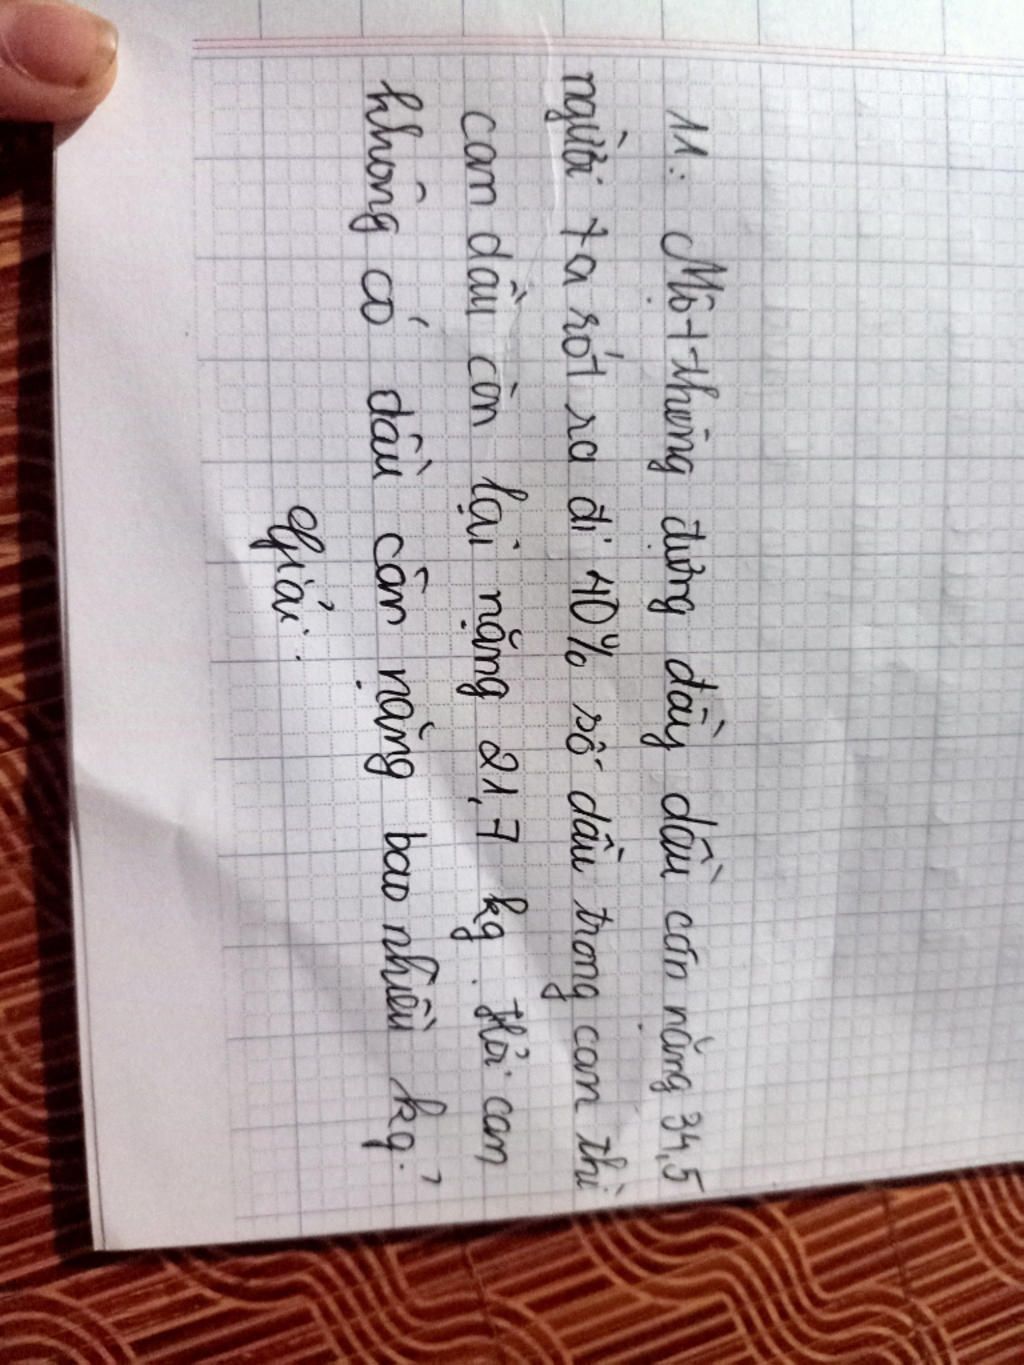 11: Một thùng đựng đầy dầu cân nặng 34,5
người ta rót ra đi 40% số dầu trong can thì
can dầu còn lại nặng 21,7 kg. Hỏi can
không có dầu cân nặng bao nhiêu kg?
Giải: